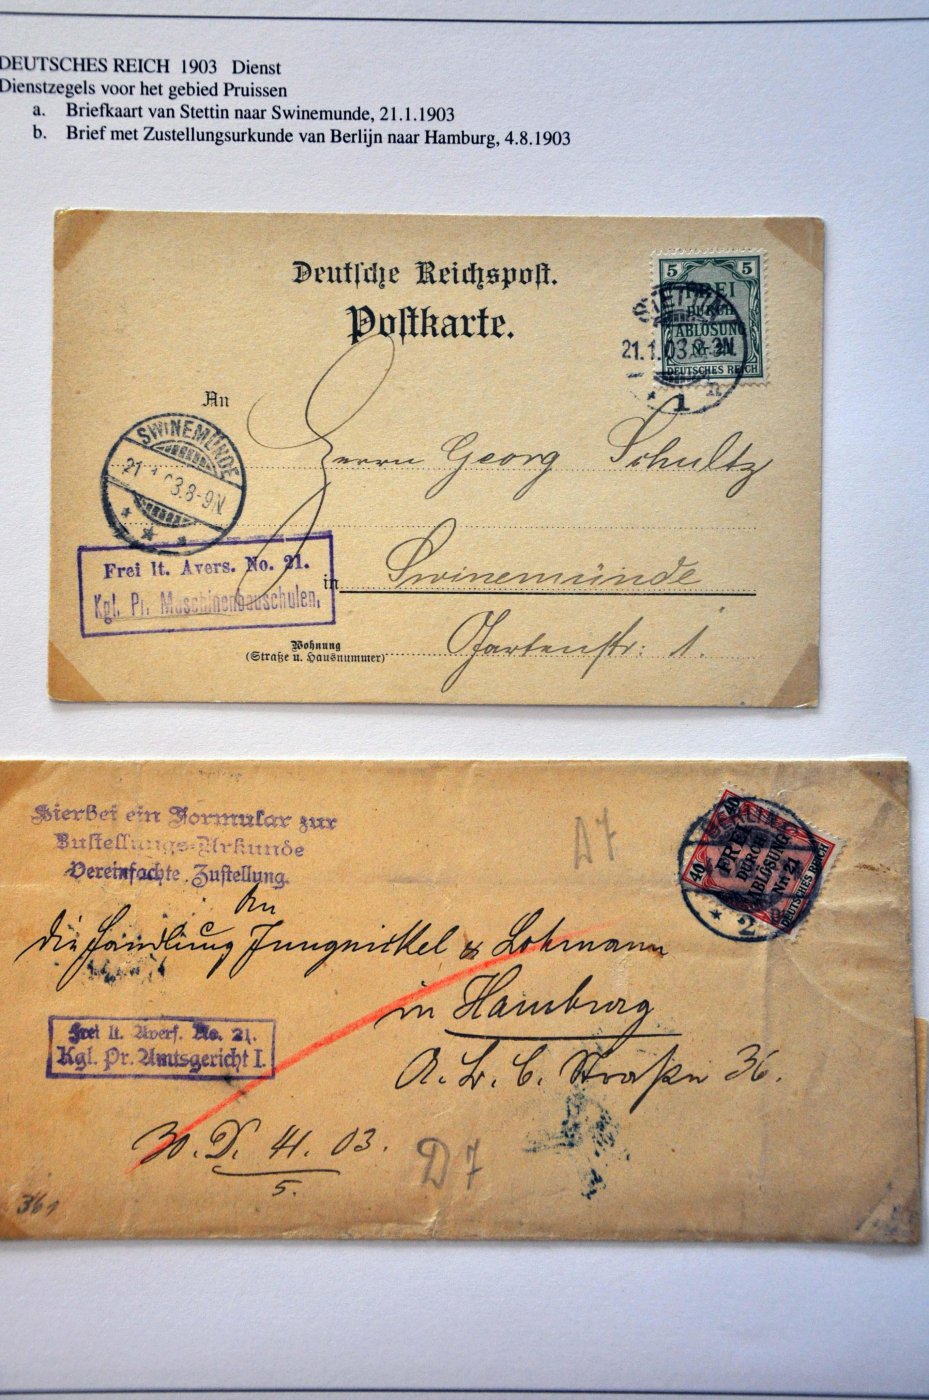 DEUTSCHES REICH 1903 Dienst
Dienstzegels voor het gebied Pruissen
a. Briefkaart van Stettin naar Swinemunde, 21.1.1903
b. Brief met Zustellungsurkunde van Berlijn naar Hamburg, 4.8.1903
Deutsche Reichspost.
Postkarte.
5 5
FREI
DURCH
ABLÖSUNG
Nr. 21
DEUTSCHES REICH
STETTIN
21.1.03.2-3N.
1
An
SWINEMÜNDE
21.1.03.8-9N.
Herrn Georg Schultz
Frei lt. Avers. No. 21.
Kgl. Pr. Maschinenbauschulen.
in Swinemünde
Wohnung
(Straße u. Hausnummer)
Gartenstr: 1.
Hierbei ein Formular zur
Zustellungs-Urkunde
Vereinfachte Zustellung.
A7
40 40
FREI
DURCH
ABLÖSUNG
Nr. 21
DEUTSCHES REICH
BERLIN
2
An
die Handlung Jungnickel & Lohmann
in Hamburg
Frei lt. Avers. No. 21.
Kgl. Pr. Amtsgericht I.
A. B. C. Straße 36.
30. D. 41. 03.
5.
D7
361